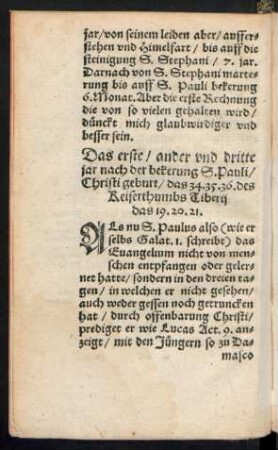 jar/von seinem leiden aber/aufferstehen
stehen vnd Himelfart/ bis auff die
steinigung S. Stephani / 7. jar.
Darnach von S. Stephani marterung
rung bis auff S. Pauli bekerung
6. Monat. Aber die erste Rechnung
die von so vielen gehalten wird/
dünckt mich glaubwirdiger vnd
besser sein.
Das erste/ ander vnd dritte
jar nach der bekerung S. Pauli/
Christi geburt/ das 34.35.36. des
Keiserthumbs Tiberij
das 19.20.21.
ALs nu S. Paulus also (wie er
selbs Galat. 1. schreibt) das
Euangelium nicht von menschen
schen entpfangen oder gelernet
net hatte/ sondern in den dreien tagen/
gen/ in welchen er nicht gesehen/
auch weder gessen noch getruncken
hat / durch offenbarung Christi/
prediget er wie Lucas Act. 9. anzeigt/
zeigt/ mit den Jüngern so zu Da-
masco